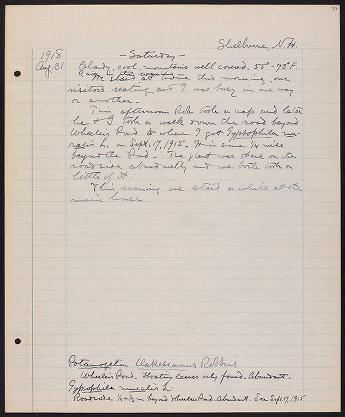 Shelburne, N.H.
1918
Aug. 31
- Saturday -
Cloudy, cool, mountains well covered. 55°-73° F.
We staid at home this morning, our
visitors resting and I was busy in one way
or another.
This afternoon Rob took a nap and later
he & I took a walk down the road beyond
Wheeler's Pond to where I got Gypsophila mu-
ralis L. on Sept. 17, 1915. It is some 1/4 mile
beyond the Pond. - The plant was there on the
roadside abundantly and we both took a
little of it.
This evening we staid a while at the
main house
Potamogeton Oakesianus Robbins
Wheeler's Pond. Floating leaves only found. Abundant.
Gypsophila muralis L.
Roadside beyond Wheeler's Pond. Abundant. See Sept. 17, 1915